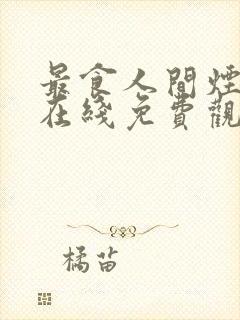 最食人間煙
在綫免費觀
橘苗